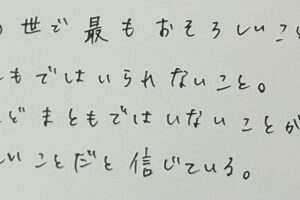 世で最もおそろしいこと
もではいられないこと。
どまともではいないことが
いことだと信じている。